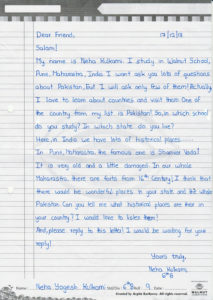 Dear Friend,
Salam!
My name is Neha Kulkarni. I study in Walnut School,
Pune, Maharashtra, India. I want ask you lots of questions
about Pakistan. But I will ask only few of them! Actually
I love to learn about countries and visit them. One of
the country from my list is Pakistan! So, in which school
do you study? In which state do you live?
Here, in India we have lots of historical places.
In Pune, Maharashtra, the famous one is Shaniwar Vada!
It is very old and a little damaged. In our whole
Maharashtra, there are forts from 16th Century! I think that
there would be wonderful places in your state and whole
Pakistan. Can you tell me what historical places are their in
your country? I would love to listen them!
And, please reply to this letter! I would be waiting for your
reply!
Yours truly,
Neha Kulkarni,
6th
Name: Neha Yogesh Kulkarni
WALNUT